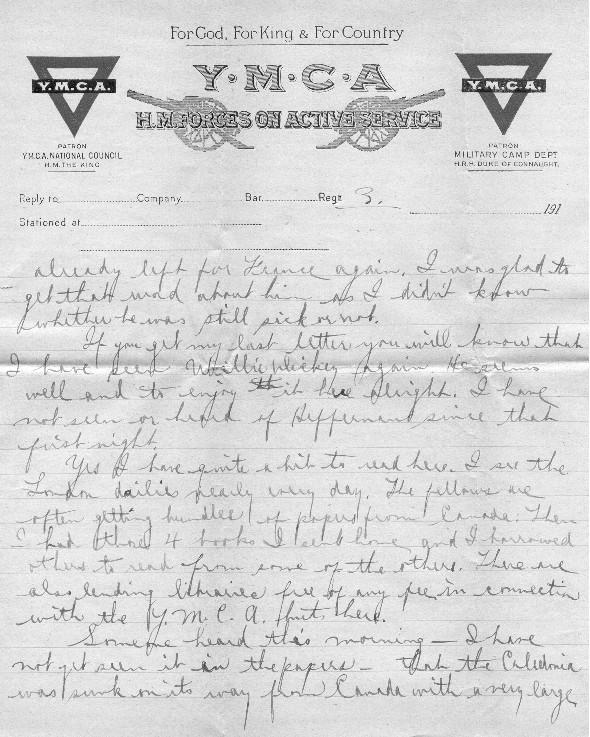 For God, For King & For Country
Y·M·C·A
H.M. FORCES ON ACTIVE SERVICE
Y.M.C.A.
PATRON
Y.M.C.A. NATIONAL COUNCIL
H.M. THE KING
Y.M.C.A.
PATRON
MILITARY CAMP DEPT
H.R.H. DUKE OF CONNAUGHT.
Reply to Company Bar. Regt 3. 191
Stationed at
already left for France again. I was glad to
get that word about him as I didn't know
whether he was still sick or not.
If you get my last letter you will know that
I have seen Willie Hickey again He seems
well and to enjoy it here alright. I have
not seen or heard of Heffernan since that
first night
Yes I have quite a bit to read here. I see the
London dailies nearly every day. The fellows are
often getting bundles of papers from Canada. Then
I had those 4 books I sent home and I borrowed
others to read from some of the others. There are
also lending libraries free of any fee in connection
with the Y.M.C.A. huts here.
Someone heard this morning – I have
not yet seen it in the papers – that the Caledonia
was sunk on its way from Canada with a very large